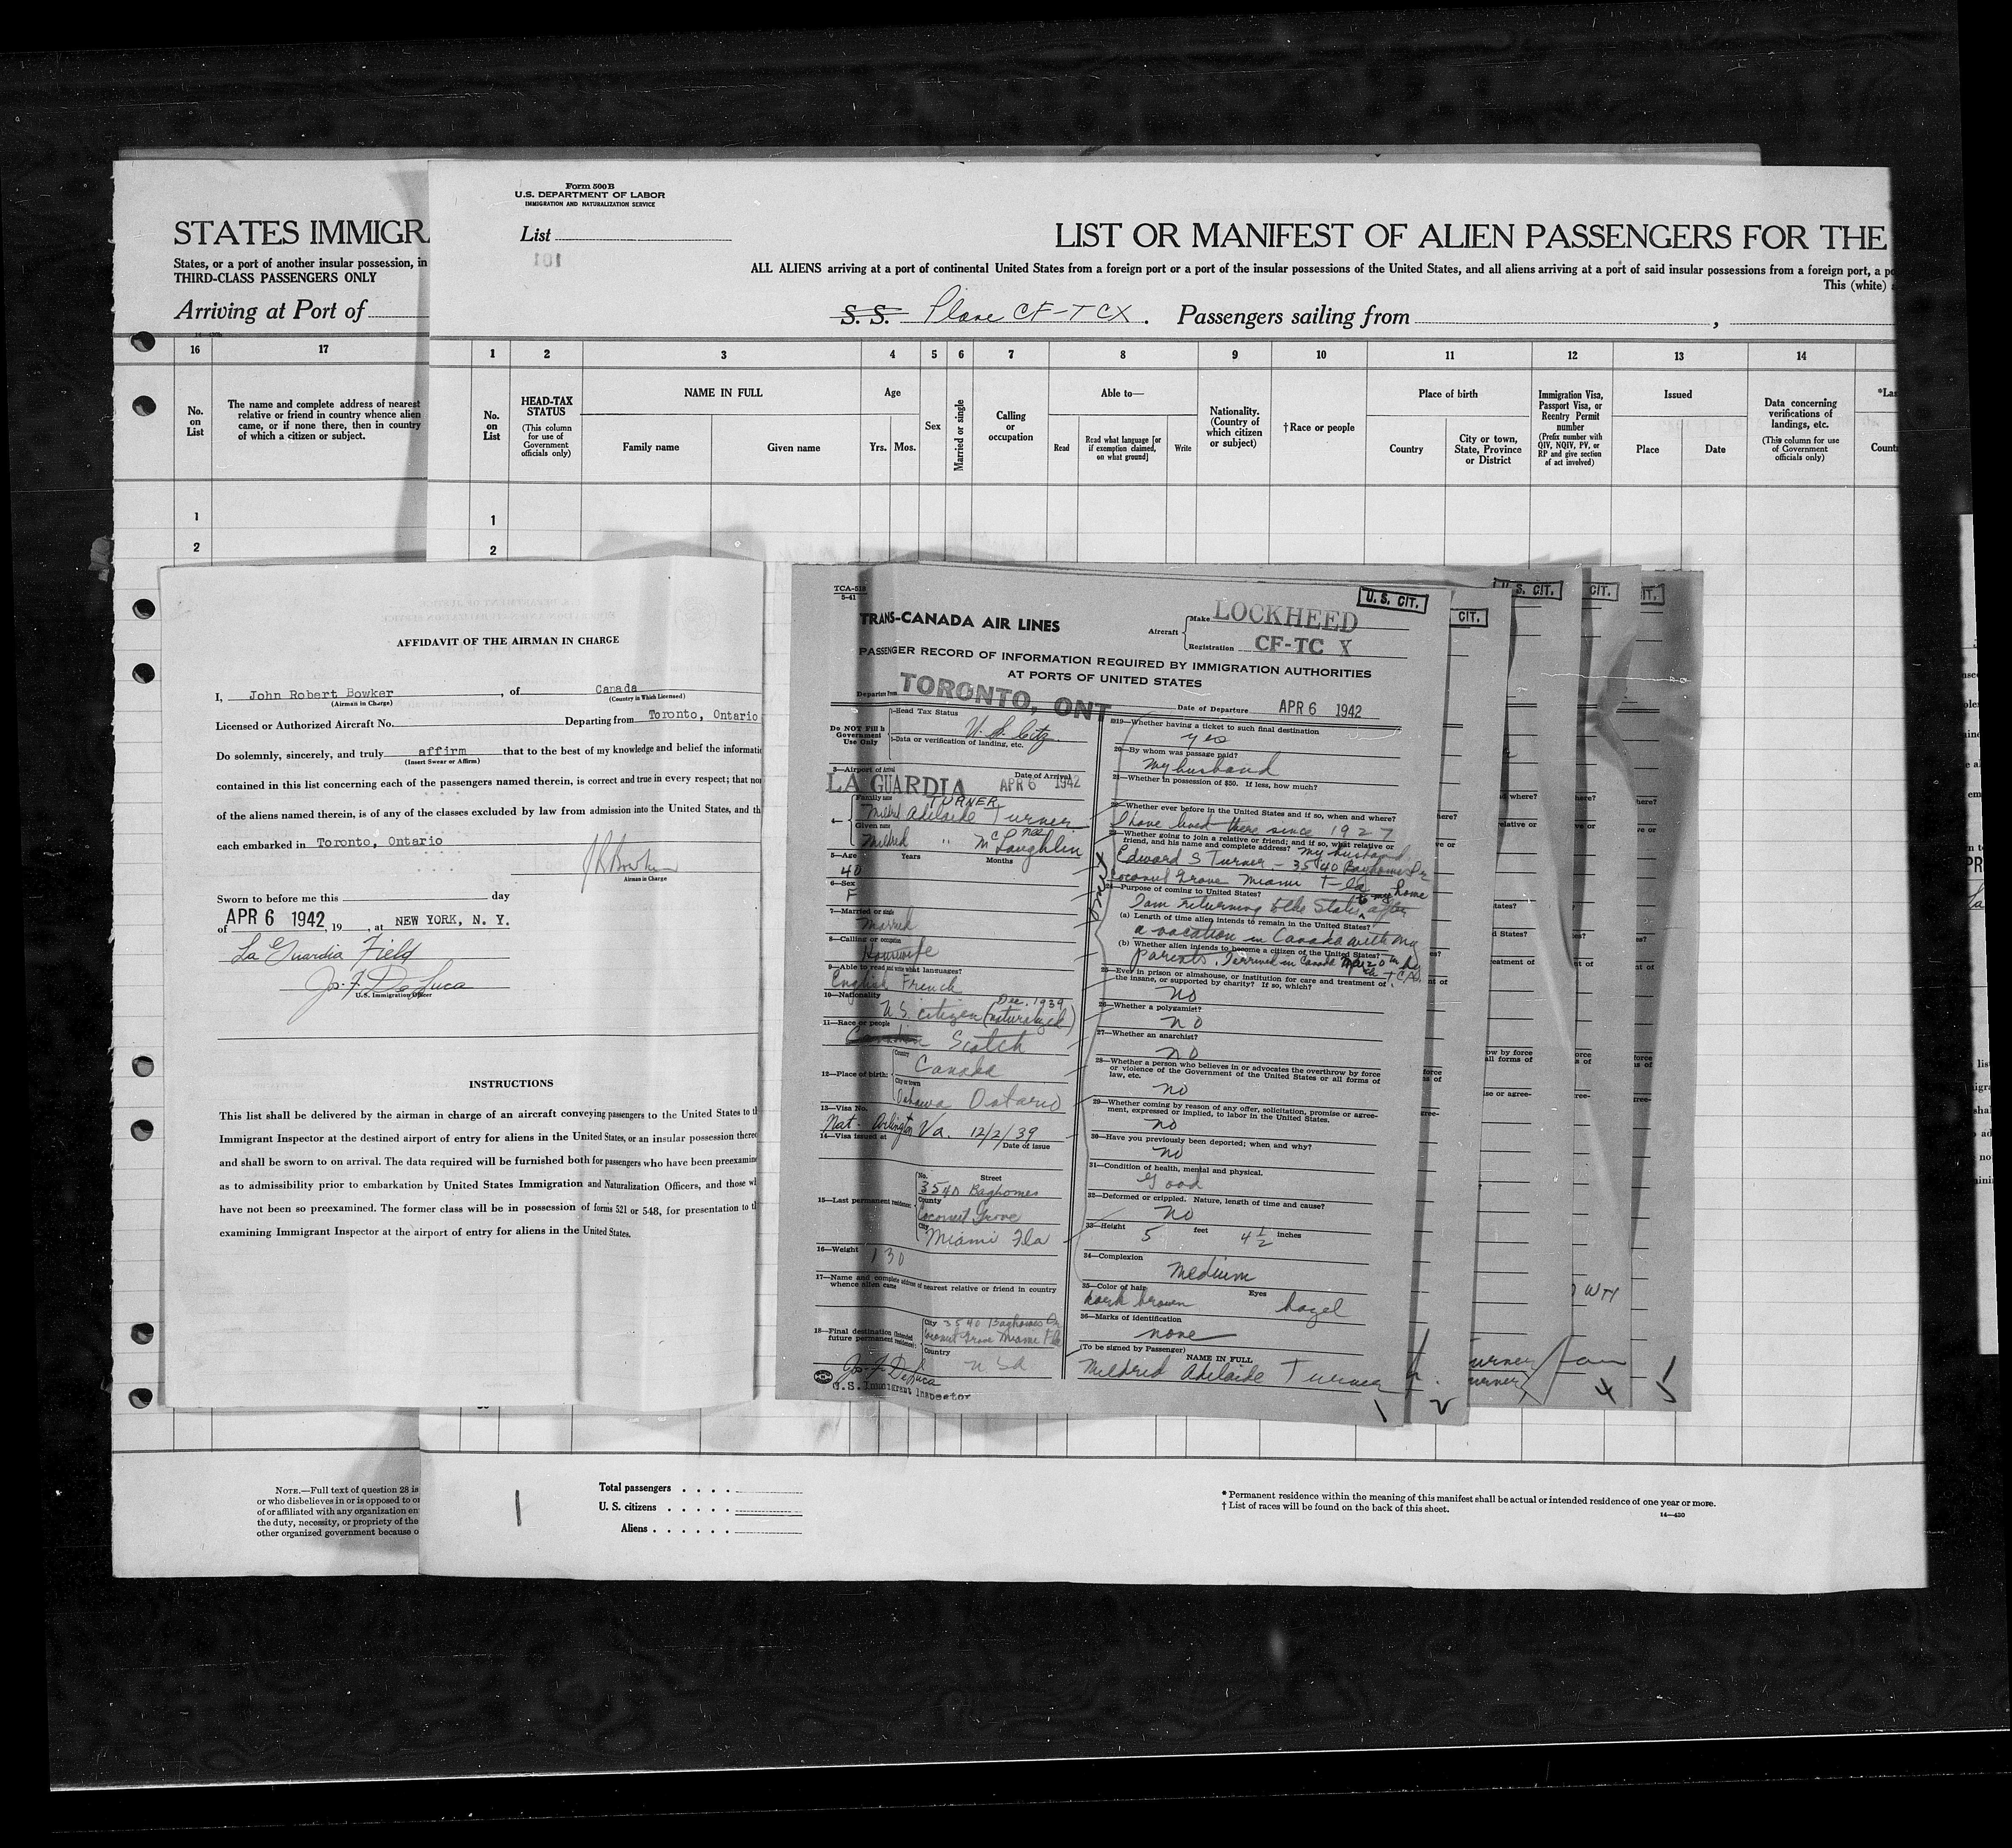 STATES IMMIGRA
States, or a port of another insular possession, in
THIRD-CLASS PASSENGERS ONLY
Arriving at Port of
16 17
No. on List
The name and complete address of nearest
relative or friend in country whence alien
came, or if none there, then in country
of which a citizen or subject.
1
2
Form 500B
U.S. DEPARTMENT OF LABOR
IMMIGRATION AND NATURALIZATION SERVICE
List
101
LIST OR MANIFEST OF ALIEN PASSENGERS FOR THE
ALL ALIENS arriving at a port of continental United States from a foreign port or a port of the insular possessions of the United States, and all aliens arriving at a port of said insular possessions from a foreign port, a po
This (white)
S. S. Plane CF-TCX. Passengers sailing from
1 2 3 4 5 6 7 8 9 10 11 12 13 14
No. on List
HEAD-TAX STATUS
(This column for use of Government officials only)
NAME IN FULL
Family name Given name
Age
Yrs. Mos.
Sex
Married or single
Calling or occupation
Able to—
Read
Read what language [or if exemption claimed, on what ground]
Write
Nationality. (Country of which citizen or subject)
†Race or people
Place of birth
Country
City or town, State, Province or District
Immigration Visa, Passport Visa, or Reentry Permit number
(Prefix number with QIV, NQIV, PV, or RP and give section of act involved)
Issued
Place Date
Data concerning verifications of landings, etc.
(This column for use of Government officials only)
*Las
Count
1
2
AFFIDAVIT OF THE AIRMAN IN CHARGE
I, John Robert Bowker, of Canada
(Airman in Charge) (Country in Which Licensed)
Licensed or Authorized Aircraft No. Departing from Toronto, Ontario
Do solemnly, sincerely, and truly affirm that to the best of my knowledge and belief the informatio
(Insert Swear or Affirm)
contained in this list concerning each of the passengers named therein, is correct and true in every respect; that no
of the aliens named therein, is of any of the classes excluded by law from admission into the United States, and th
each embarked in Toronto, Ontario
J R Bowker
Airman in Charge
Sworn to before me this day
of APR 6 1942, 19, at NEW YORK, N. Y.
La Guardia Field
Jos. F. DeLuca
U.S. Immigration Officer
INSTRUCTIONS
This list shall be delivered by the airman in charge of an aircraft conveying passengers to the United States to th
Immigrant Inspector at the destined airport of entry for aliens in the United States, or an insular possession thereo
and shall be sworn to on arrival. The data required will be furnished both for passengers who have been preexamin
as to admissibility prior to embarkation by United States Immigration and Naturalization Officers, and those wh
have not been so preexamined. The former class will be in possession of forms 521 or 548, for presentation to th
examining Immigrant Inspector at the airport of entry for aliens in the United States.
TCA-519
5-41
U. S. CIT.
TRANS-CANADA AIR LINES
Aircraft Make LOCKHEED
Registration CF-TC X
PASSENGER RECORD OF INFORMATION REQUIRED BY IMMIGRATION AUTHORITIES
AT PORTS OF UNITED STATES
Departure from TORONTO, ONT Date of Departure APR 6 1942
Do NOT Fill In
Government
Use Only
1—Head Tax Status
U. S. Citz
2—Data or verification of landing, etc.
3—Airport of Arrival Date of Arrival
LA GUARDIA APR 6 1942
4— Family name TURNER
Mildred Adelaide Turner
Given name nee
Mildred " McLaughlin
5—Age Years Months
40
6—Sex
F
7—Married or single
Married
8—Calling or occupation
Housewife
9—Able to read and write what languages?
English French
10—Nationality Dec. 1939
U.S. citizen (naturalized)
11—Race or people
Canadian Scotch
12—Place of birth: Country
Canada
City or town
Oshawa Ontario
13—Visa No.
Nat- Arlington Va. 12/2/39
14—Visa issued at Date of issue
15—Last permanent residence: No. Street
3540 Bayhomes
County
Coconut Grove
City
Miami Fla
16—Weight 130
17—Name and complete address of nearest relative or friend in country
whence alien came
18—Final destination (intended
future permanent residence):
City 3540 Bayhomes Dr
Coconut Grove Miami Fla
Country
USA
Jos. F. DeLuca
U.S. Immigrant Inspector
19—Whether having a ticket to such final destination
yes
20—By whom was passage paid?
My husband
21—Whether in possession of $50. If less, how much?
22—Whether ever before in the United States and if so, when and where?
I have lived there since 1927
23—Whether going to join a relative or friend; and if so, what relative or
friend, and his name and complete address? My husband
Edward S Turner - 3540 Bayhomes Dr
Coconut Grove Miami Fla
24—Purpose of coming to United States? to my home
I am returning to the States after
(a) Length of time alien intends to remain in the United States?
a vacation in Canada with my
(b) Whether alien intends to become a citizen of the United States?
parents. I arrived in Canada by TCA.
25—Ever in prison or almshouse, or institution for care and treatment of
the insane, or supported by charity? If so, which?
no
26—Whether a polygamist?
no
27—Whether an anarchist?
no
28—Whether a person who believes in or advocates the overthrow by force
or violence of the Government of the United States or all forms of
law, etc.
no
29—Whether coming by reason of any offer, solicitation, promise or agree-
ment, expressed or implied, to labor in the United States.
no
30—Have you previously been deported; when and why?
no
31—Condition of health, mental and physical.
Good
32—Deformed or crippled. Nature, length of time and cause?
no
33—Height 5 feet 4½ inches
34—Complexion
Medium
35—Color of hair Eyes
dark brown hazel
36—Marks of identification
none
(To be signed by Passenger) NAME IN FULL
Mildred Adelaide Turner
1
CIT.
2
S. CIT.
CIT.
IT.
WH
urner
urner
4
5
NOTE.—Full text of question 28 is
or who disbelieves in or is opposed to or
of or affiliated with any organization en
the duty, necessity, or propriety of the
other organized government because o
Total passengers . . . .
U. S. citizens . . . . .
Aliens . . . . . .
* Permanent residence within the meaning of this manifest shall be actual or intended residence of one year or more.
† List of races will be found on the back of this sheet.
14—430